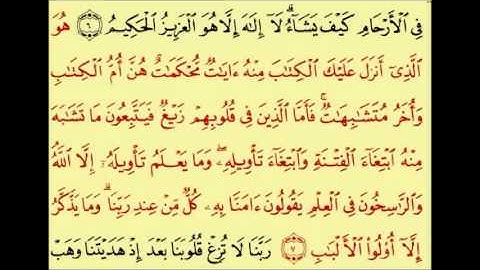 فِي ٱلۡأَرۡحَامِ كَيۡفَ يَشَآءُۚ لَآ إِلَٰهَ إِلَّا هُوَ ٱلۡعَزِيزُ ٱلۡحَكِيمُ ٦ هُوَ
ٱلَّذِيٓ أَنزَلَ عَلَيۡكَ ٱلۡكِتَٰبَ مِنۡهُ ءَايَٰتٞ مُّحۡكَمَٰتٌ هُنَّ أُمُّ ٱلۡكِتَٰبِ
وَأُخَرُ مُتَشَٰبِهَٰتٞۖ فَأَمَّا ٱلَّذِينَ فِي قُلُوبِهِمۡ زَيۡغٞ فَيَتَّبِعُونَ مَا تَشَٰبَهَ
مِنۡهُ ٱبۡتِغَآءَ ٱلۡفِتۡنَةِ وَٱبۡتِغَآءَ تَأۡوِيلِهِۦۖ وَمَا يَعۡلَمُ تَأۡوِيلَهُۥٓ إِلَّا ٱللَّهُۗ
وَٱلرَّٰسِخُونَ فِي ٱلۡعِلۡمِ يَقُولُونَ ءَامَنَّا بِهِۦ كُلّٞ مِّنۡ عِندِ رَبِّنَاۗ وَمَا يَذَّكَّرُ
إِلَّآ أُوْلُواْ ٱلۡأَلۡبَٰبِ ٧ رَبَّنَا لَا تُزِغۡ قُلُوبَنَا بَعۡدَ إِذۡ هَدَيۡتَنَا وَهَبۡ